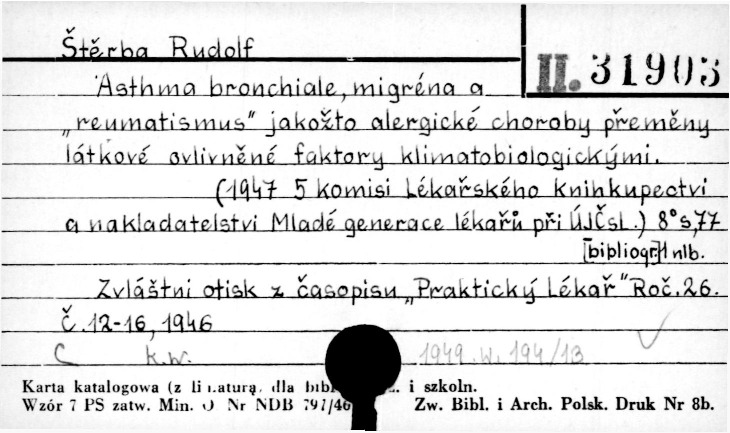 Štěrba Rudolf
II. 31903
Asthma bronchiale, migréna a
„reumatismus" jakožto alergické choroby přeměny
látkové ovlivněné faktory klimatobiologickými.
(1947 5 komisi Lékařského knihkupectví
a nakladatelství Mladé generace lékařů při ÚJČsL.) 8° s,77
[bibliogr.] 1 nlb.
Zvláštni otisk z časopisu „Praktický Lékař" Roč. 26.
Č. 12-16, 1946
C k.w. 1949. w. 194/13
Karta katalogowa (z dla i szkoln.
Wzór 7 PS zatw. Min. O Nr NDB 797/46 Zw. Bibl. i Arch. Polsk. Druk Nr 8b.